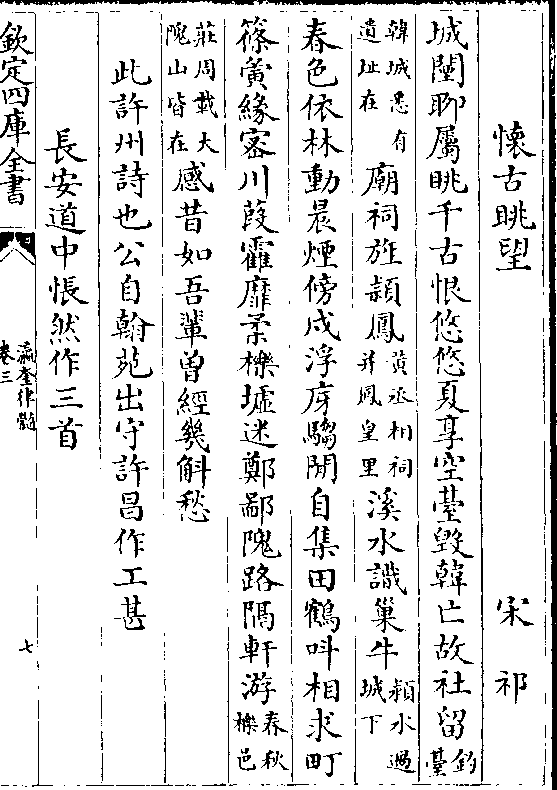 懷古眺望　宋祁
城闉聊屬眺千古恨悠悠夏享空臺毀韓亡故社留鈞臺
韓城悉有遺址在廟祠旌潁鳳黃丞相祠并鳳皇里溪水識巢牛潁水過城下
春色依林動晨煙傍戍浮庌騶閒自集田鶴呌相求町
篠黄緣密川葭靃靡柔櫟墟迷鄭鄙隗路隔軒游春秋櫟邑
莊周載大隗山皆在感昔如吾輩曽經幾斛愁
此許州詩也公自翰苑出守許昌作工甚
長安道中悵然作三首
欽定四庫全書
瀛奎律髓
卷三
七